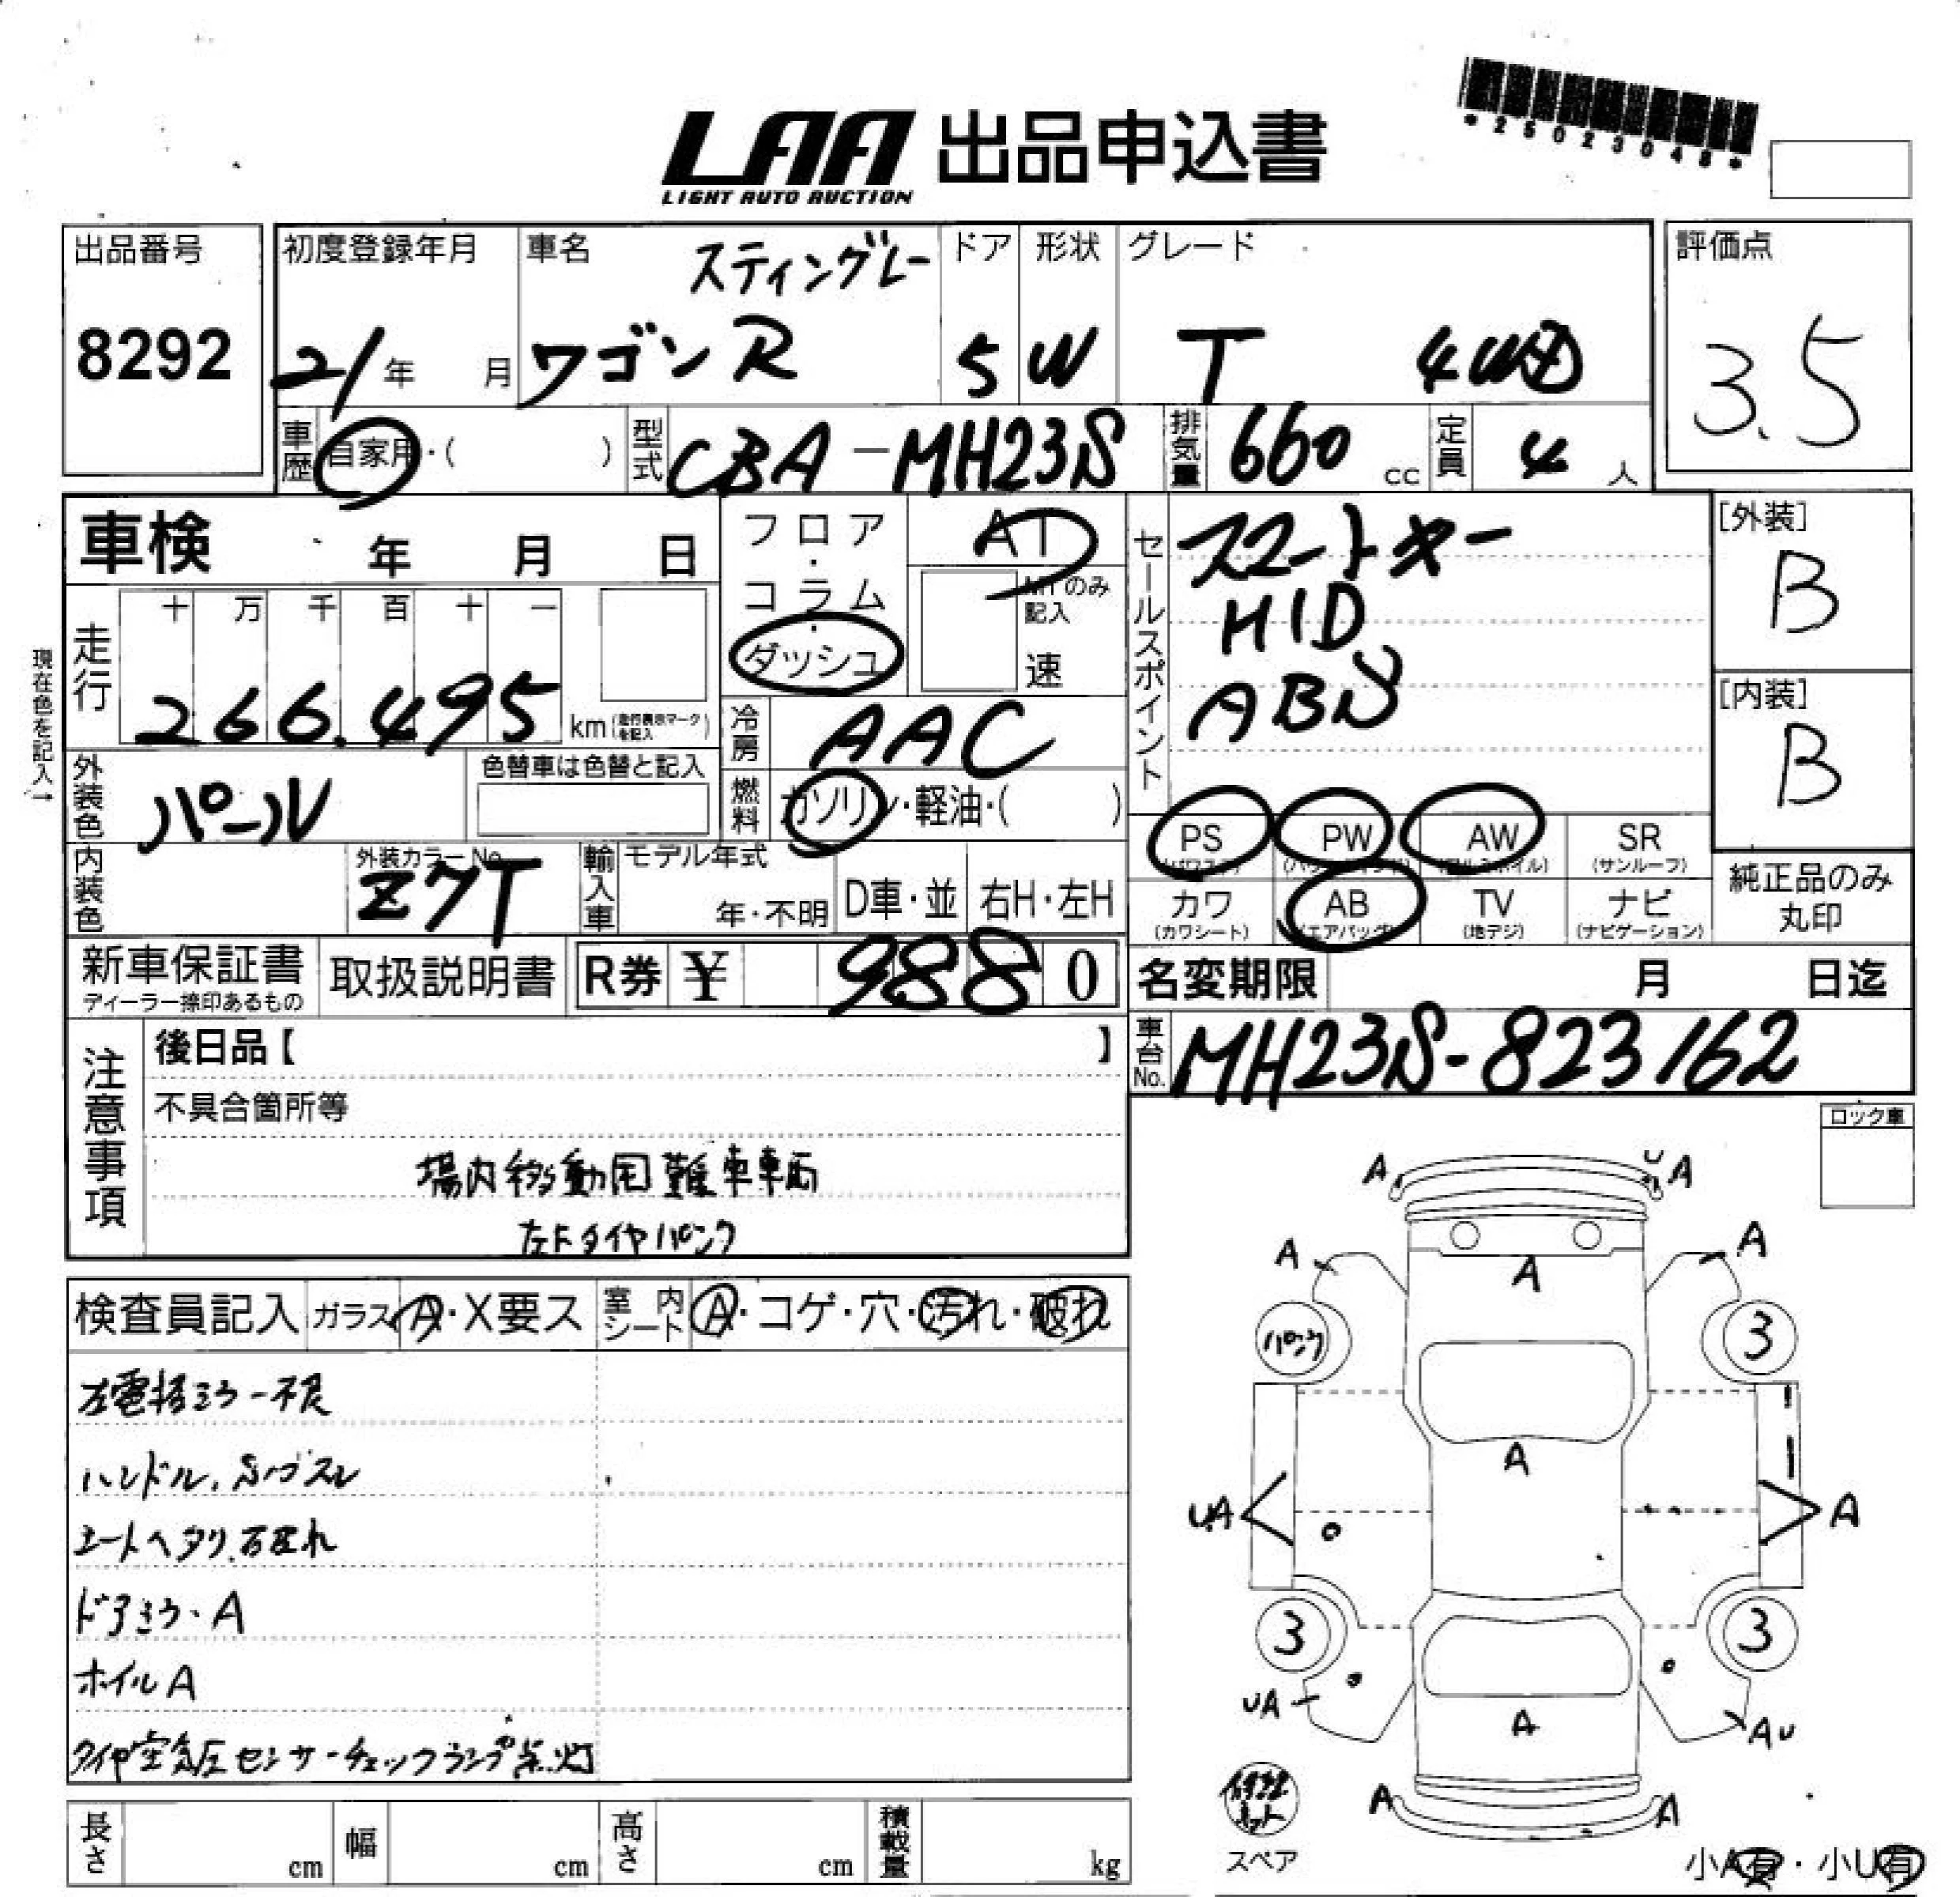 *25023048*
LAA 出品申込書
LIGHT AUTO AUCTION
出品番号
8292
初度登録年月
21年 月
車名
スティングレー
ワゴンR
ドア
5
形状
W
グレード
T 4WD
評価点
3.5
車歴
自家用・( )
型式
CBA-MH23S
排気量
660 cc
定員
4 人
車検 年 月 日
フロア・コラム・ダッシュ
AT
MTのみ記入
速
セールスポイント
スマートキー
HID
ABS
[外装]
B
[内装]
B
現在色を記入→
走行
十 万 千 百 十 一
266.495 km(走行表示マークを記入)
冷房
AAC
外装色
パール
色替車は色替と記入
燃料
ガソリン・軽油・( )
内装色
外装カラーNo.
Z7T
輸入車
モデル年式
年・不明
D車・並
右H・左H
PS
(パワステ)
PW
(パワーウインドウ)
AW
(アルミホイル)
SR
(サンルーフ)
カワ
(カワシート)
AB
(エアバッグ)
TV
(地デジ)
ナビ
(ナビゲーション)
純正品のみ
丸印
新車保証書
ディーラー捺印あるもの
取扱説明書
R券 ¥ 9880
名変期限 月 日迄
車台No.
MH23S-823162
注意事項
後日品【 】
不具合箇所等
場内移動困難車車両
左Fタイヤパンク
ロック車
検査員記入
ガラス A・X要ス
室内シート A・コゲ・穴・汚れ・破れ
左電格ミラー不良
ハンドル、Sノブスレ
シートヘタリ、
ドアミラーA
ホイルA
タイヤ空気圧センサーチェックランプ点灯
A
U A
A
A
A
パンク
3
A
UA
A
3
3
UA
A
AU
A
A
スペア
小A有・小U有
長さ cm
幅 cm
高さ cm
積載量 kg